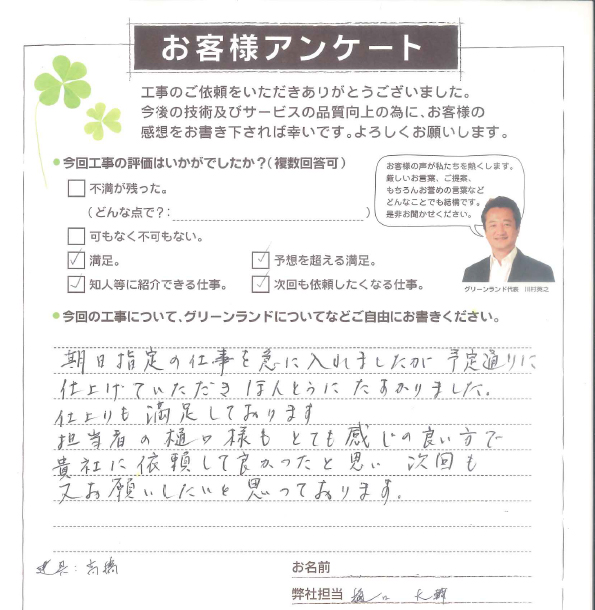 お客様アンケート
工事のご依頼をいただきありがとうございました。
今後の技術及びサービスの品質向上の為に、お客様の
感想をお書き下されば幸いです。よろしくお願いします。
今回工事の評価はいかがでしたか？（複数回答可）
不満が残った。
（どんな点で？：　）
可もなく不可もない。
満足。
予想を超える満足。
知人等に紹介できる仕事。
次回も依頼したくなる仕事。
お客様の声が私たちを熱くします。
厳しいお言葉、ご提案、
もちろんお誉めの言葉など
どんなことでも結構です。
是非お聞かせください。
グリーンランド代表　川村英之
今回の工事について、グリーンランドについてなどご自由にお書きください。
期日指定の仕事を急に入れましたが 予定通りに
仕上げていただき ほんとうに たすかりました。
仕上りも 満足しております
担当者の樋口様も とても感じの良い方で
貴社に依頼して良かったと思い 次回も
又お願いしたいと思っております。
建具：高橋
お名前
弊社担当 樋口